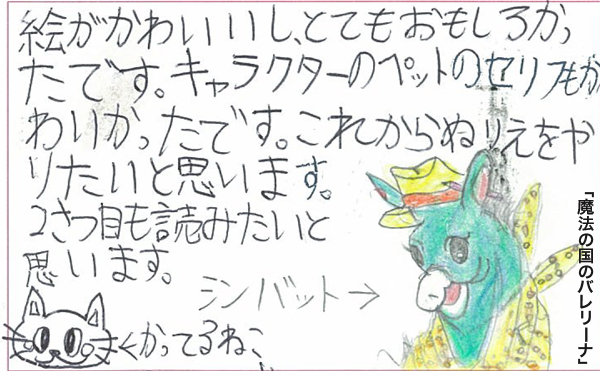 絵がかわいいし、とてもおもしろかっ
たです。キャラクターのペットのセリフもか
わいかったです。これからぬりえをや
りたいと思います。
2さつ目も読みたいと
思います。
シンバット→
←かってるねこ
「魔法の国のバレリーナ」